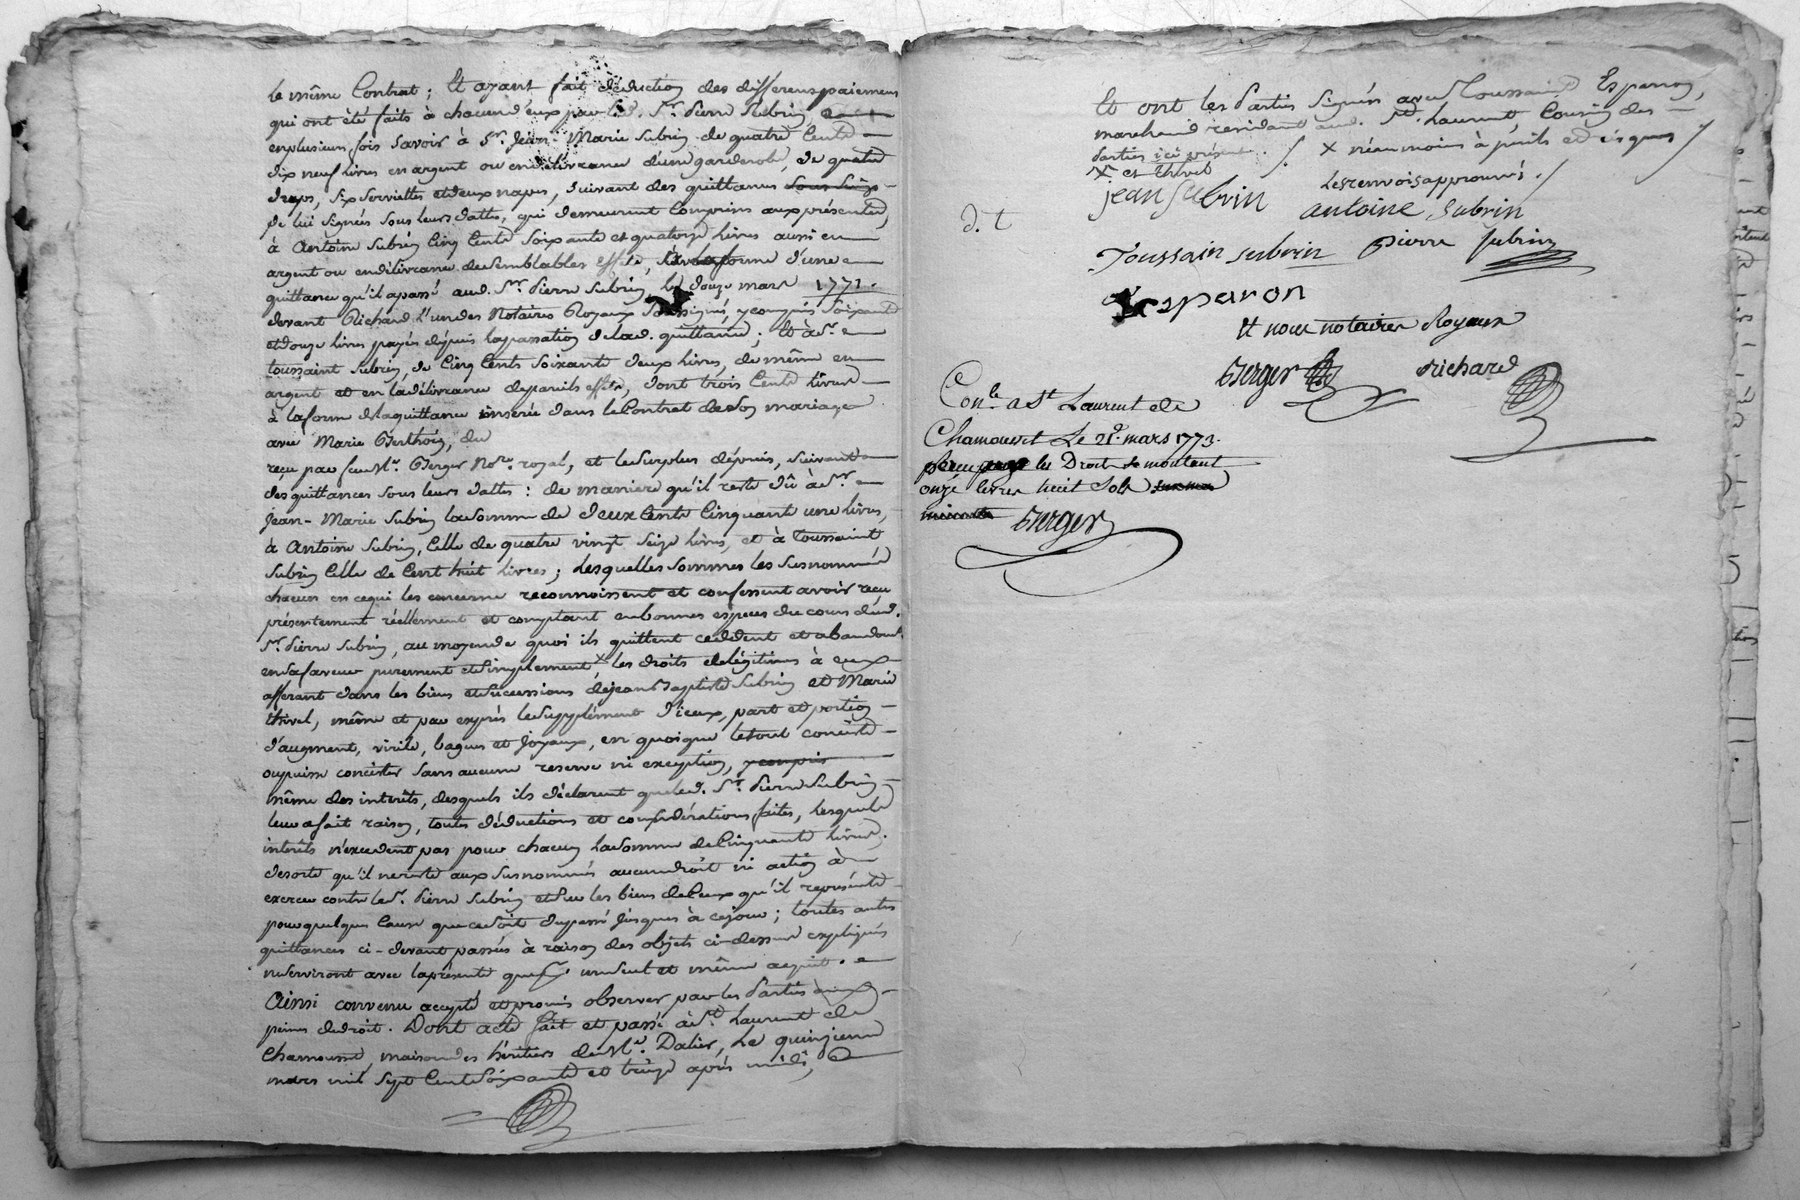 le même Contrat ; Et ayant fait déduction des differens paiemens
qui ont été faits à chacun d'eux par led. Sr. Pierre Subrin,
en plusieurs fois Savoir à Sr. Jean-Marie Subrin de quatre Cents
dix neuf livres en argent ou en délivrance d'une garderobe, de quatre
draps, Six Serviettes et deux napes, Suivant des quittances
de lui Signées Sous leurs dattes, qui demeurent Comprises aux présentes,
à Antoine Subrin Cinq Cents Soixante et quatorze livres aussi en
argent ou en délivrance de Semblables effets, d'une
quittance qu'il a passé aud. Sr. Pierre Subrin, le Douze mars 1771.
devant Richard l'un des Notaires Royaux Soussignés, y compris Soixante
et douze livres payés dépuis la passation de lad. quittance ; Et à Sr.
toussaint Subrin, de Cinq Cents Soixante deux livres, de même en
argent et en la délivrance de pareils effets, dont trois Cents livres
à la forme de la quittance inserée dans le Contrat de Son mariage
avec Marie Berthoin, du
reçu par feu Me. Berger Nore. royal, et le Surplus dépuis, Suivant
des quittances Sous leurs dattes : de maniere qu'il reste dû à Sr.
Jean-Marie Subrin la Somme de deux Cents Cinquante une livres,
à Antoine Subrin, Celle de quatre vingt Seize livres, et à toussaint
Subrin Celle de Cent huit livres ; Lesquelles Sommes les Susnommés
chacun en ce qui les concerne reconnoissent et confessent avoir reçu
présentement réellement et comptant en bonnes espèces du cours dud.
Sr. Pierre Subrin, au moyen de quoi ils quittent ceddent et abandonnt.
en Sa faveur purement et Simplement x les droits de légitimes à eux
afferant dans les biens et Successions de jean Baptiste Subrin et Marie
thivel, même et par exprès le Supplément d'iceux, part et portion
d'augment, virile, bagues et Joyaux, en quoi que le tout consiste
ou puisse consister Sans aucune reserve ni exception, y compris
même des interêts, desquels ils déclarent que led. Sr. Pierre Subrin
leur a fait raison, toutes déductions et considérations faites, Lesquels
interêts n'excedent pas pour chacun la Somme de Cinquante livres.
de sorte qu'il ne reste aux Susnommés aucun droit ni action à
exercer contre le Sr. Pierre Subrin et Sur les biens de Ceux qu'il représente
pour quelque Cause que ce Soit du passé jusques à ce jour ; toutes autres
quittances ci-devant passées à raison des objets ci-dessus expliqués
ne Serviront avec la présente que d'un Seul et même acquit.
Ainsi convenu accepté et promis observer par les Parties
peines de droit. Dont acte fait et passé à St. Laurent de
Chamousset, maison des héritiers de Me. Dalier, Le quinzieme
mars mil Sept Cent Soixante et treize après midi,
Et ont les Parties Signés avec Toussaint Esparron,
marchand residant aud. St. Laurent, Cousin des
Parties ici présent ./ X néanmoins à perils et risques /
X et thivel
Les renvois approuvés ./
jean Subrin
antoine Subrin
d. t
Toussain subrin
Pierre Subrin
Esparon
Et nous notaires Royaux
Berger
Richard
Conle a St Laurent de
Chamousset Le 21e. mars 1773.
les Droits Se montent
onze livres huit Sols
Berger